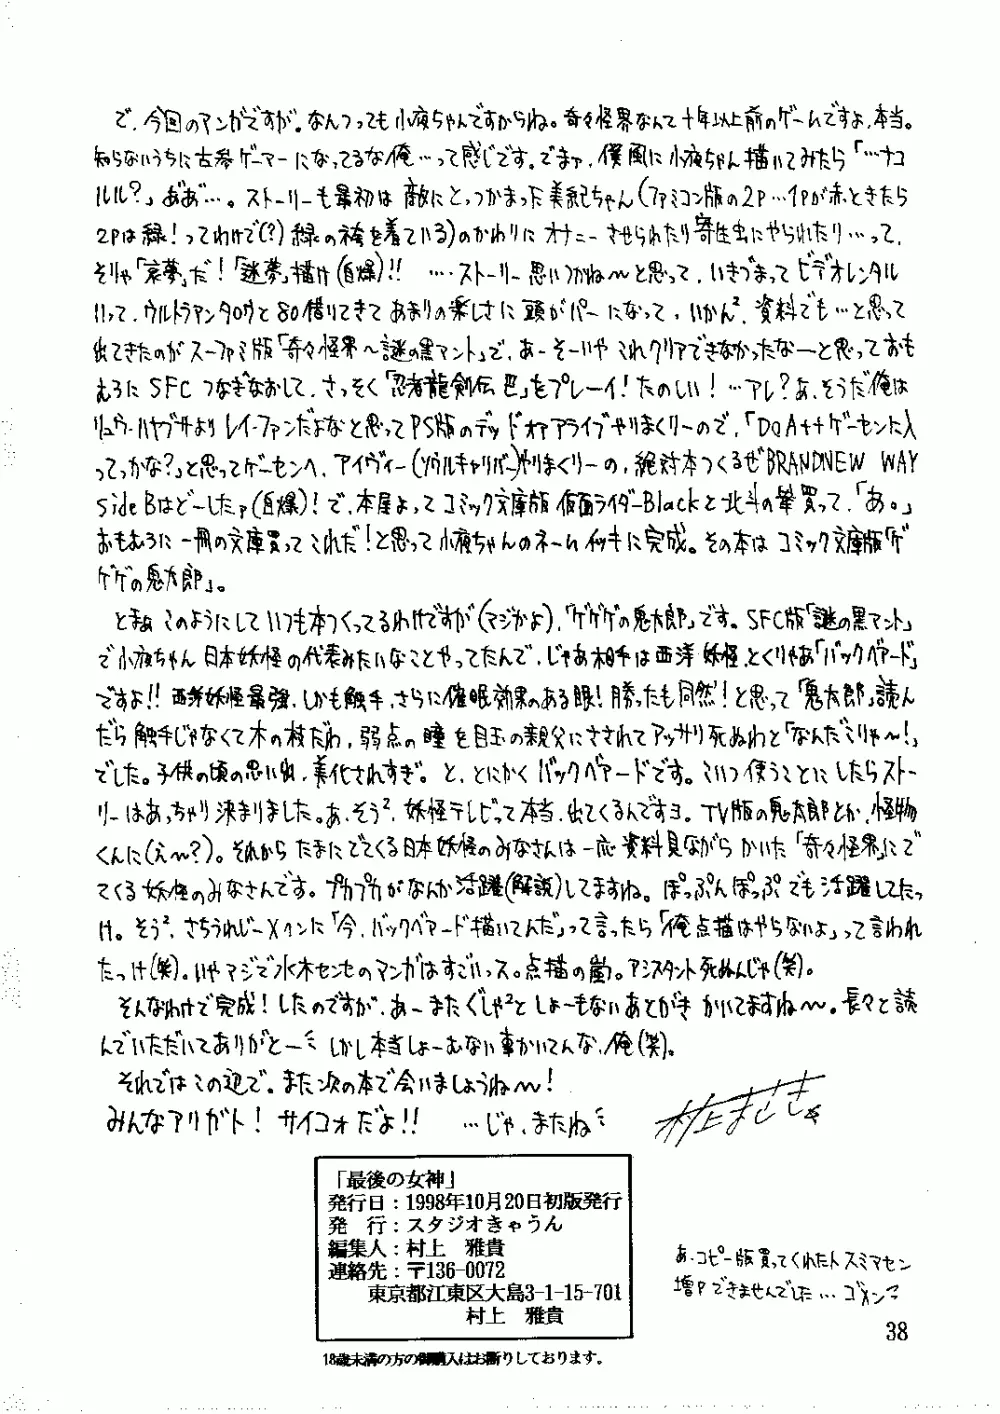 で、今回のマンガですが。なんつっても小夜ちゃんですからね。奇々怪界なんて十年以上前のゲームですよ、本当。
知らないうちに古参ゲーマーになってるな俺…って感じです。でまァ、僕風に小夜ちゃん描いてみたら「…ナコ
ルル?」ああ…。ストーリーも最初は敵にとっつかまった美紀ちゃん(ファミコン版の2P…1Pが赤ときたら
2Pは緑!ってわけで(?)緑の袴を着ている)のかわりにオナニーさせられたり寄生虫にやられたり…って、
そりゃ「哀夢」だ!「迷夢」描け(自爆)!! ….ストーリー思いつかね〜と思って、いきづまってビデオレンタル
いって、ウルトラマンタロウと80借りてきてあまりの楽しさに頭がパーになって。いかん²、資料でも…と思って
出てきたのがスーファミ版「奇々怪界〜謎の黒マント」で、あーそーいやこれクリアできなかったなーと思っておも
むろにSFCつなぎなおして、さっそく「忍者龍剣伝巴」をプレーイ!たのしい!…アレ?あ、そうだ俺は
リュウ・ハヤブサよりレイファンだよなと思ってPS版のデッドオアアライブやりまくりーので、「DOA++ゲーセンに入
ってっかな?」と思ってゲーセンへ、アイヴィー(ソウルキャリバー)やりまくりーの、絶対本つくるぜBRANDNEW WAY
sideBはどーしたァ(自爆)!で、本屋よってコミック文庫版仮面ライダーBlackと北斗の拳買って、「あ。」
おもむろに一冊の文庫買ってこれだ!と思って小夜ちゃんのネームイッキに完成。その本はコミック文庫版「ゲ
ゲゲの鬼太郎」。
とまぁこのようにしていつも本つくってるわけですが(マジかよ)、「ゲゲゲの鬼太郎」です。SFC版「謎の黒マント」
で小夜ちゃん日本妖怪の代表みたいなことやってたんで、じゃあ相手は西洋妖怪、とくりゃあ「バックベアード」
ですよ!!西洋妖怪最強、しかも触手、さらに催眠効果のある眼!勝ったも同然!と思って「鬼太郎」読ん
だら触手じゃなくて木の枝だわ、弱点の瞳を目玉の親父にさされてアッサリ死ぬわと「なんだこりゃ〜!」
でした。子供の頃の思い出、美化されすぎ。と、とにかくバックベアードです。こいつ使うことにしたらストー
リーはあっちゃり決まりました。あ、そう²、妖怪テレビって本当、出てくるんですヨ。TV版の鬼太郎とか、怪物
くんに(え〜?)。それからたまにでてくる日本妖怪のみなさんは一応資料見ながらかいた「奇々怪界」にで
てくる妖怪のみなさんです。プカプカがなんか活躍(解説)してますね。ぽっぷんぽっぷでも活躍してたっ
け。そう²、さちうれじーXクンに「今、バックベアード描いてんだ」って言ったら「俺点描はやらないよ」って言われ
たっけ(笑)。いやマジで水木センセのマンガはすごいっス。点描の嵐。アシスタント死ぬんじゃ(笑)。
そんなわけで完成!したのですが、あーまたぐじゃ²としょーもないあとがきかいてますね〜。長々と読
んでいただいてありがとー しかし本当しょーむない事かいてんな、俺(笑)。
それではこの辺で。また次の本で会いましょうね〜!
みんなアリガト! サイコォだよ!! …じゃ、またね
村上まさき
「最後の女神」
発行日:1998年10月20日初版発行
発 行:スタジオきゃうん
編集人:村上 雅貴
連絡先:〒136-0072
東京都江東区大島3-1-15-701
村上 雅貴
18歳未満の方の御購入はお断りしております。
あ、コピー版買ってくれた人スミマセン
増Pできませんでした…ゴメンネ
38